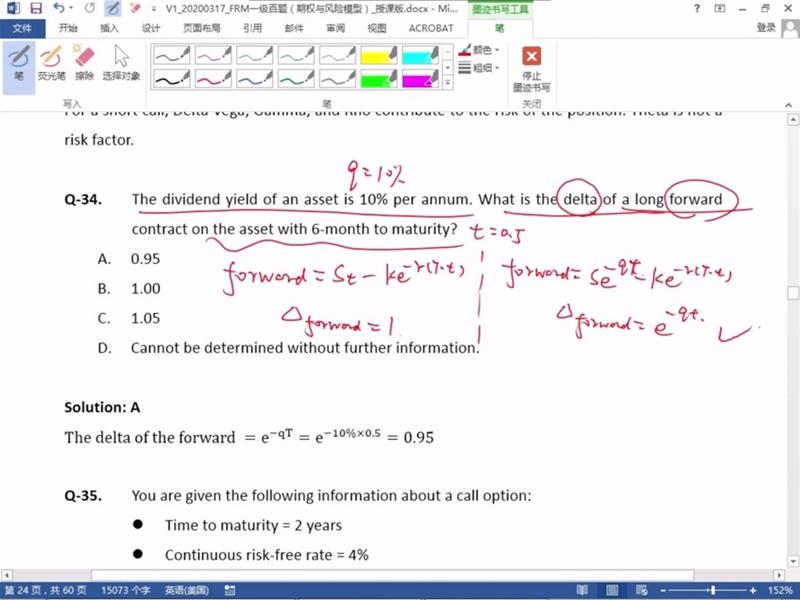 V1_20200317_FRM一级百题（期权与风险模型）_授课版.docx - Mi...
墨迹书写工具
文件 开始 插入 设计 页面布局 引用 邮件 审阅 视图 ACROBAT 笔 登录
笔 荧光笔 擦除 选择对象 颜色 粗细 停止墨迹书写
写入 笔 关闭
For a short call, Delta Vega, Gamma, and Rho contribute to the risk of the position. Theta is not a
risk factor.
q=10%
Q-34. The dividend yield of an asset is 10% per annum. What is the delta of a long forward
contract on the asset with 6-month to maturity? t=0.5
A. 0.95
forward = St - Ke^-r(T-t) forward = Se^-qt - Ke^-r(T-t)
B. 1.00
C. 1.05 Δforward = 1 Δforward = e^-qt.
D. Cannot be determined without further information.
Solution: A
The delta of the forward = e^−qT = e^−10%×0.5 = 0.95
Q-35. You are given the following information about a call option:
● Time to maturity = 2 years
● Continuous risk-free rate = 4%
第 24 页，共 60 页 15073 个字 英语(美国) 152%